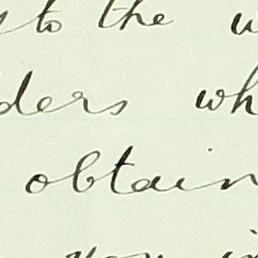 to the
ders wh
obtain